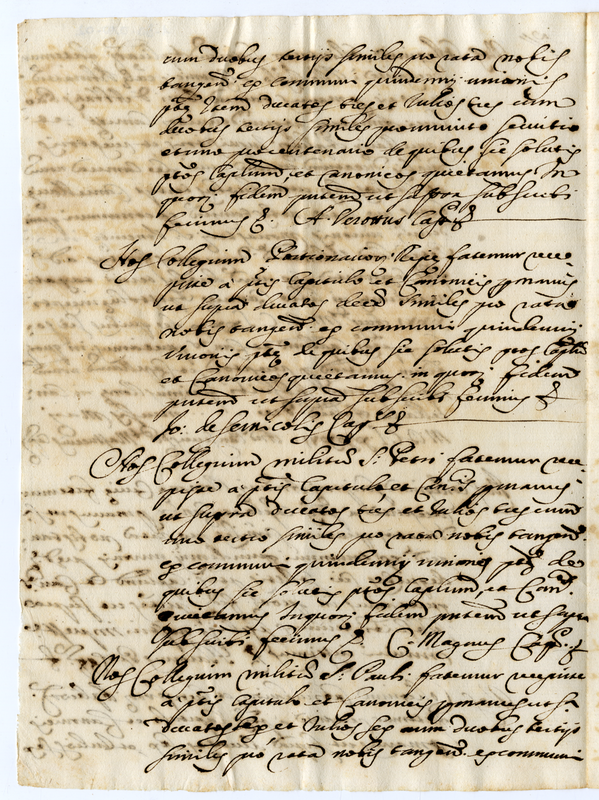 cum duobus tertijs similes pro rata nobis
tangen. ex communi quindennij unionis
ptę Item ducatos tres et Julios tres cum
duobus tertijs similes pro minuto servitio
et uno pro centenario de quibus sic solutis
ptos Caplum, et Canonicos quietamus In
quor. fidem pntem ut supra subscribi
fecimus &. A. Verottus Caps
Nos Collegium Portionarior. Ripę fatemur rece-
pisse à ptis Capitulo et Canonicis p manus
ut supra ducatos decem similes pro rata
nobis tangen. ex communi quindennij
Unionis ptę de quibus sic solutis ptos Caplum
et Canonicos quietamus in quor. fidem
pntem ut supra subscribi fecimus &
Jo: de Sernicolis Caps
Nos Collegium militum S. Petri fatemur rece-
pisse à ptis Capitulo et Cancis p manus
ut supra ducatos tres et Julios tres cum
uno tertio similes pro rata nobis tangen.
ex communi quindennij unionis ptę de
quibus sic solutis ptos Caplum, et Can.
quietamus In quor. fidem pntem ut supra
subscribi fecimus &. C. Magnus Caps.
Nos Collegium militum S. Pauli fatemur recepisse
à ptis Capitulo et Canonicis p manus ut sa
ducatos sex et Julios sex cum duobus tertijs
similes pro rata nobis tangen. ex communi